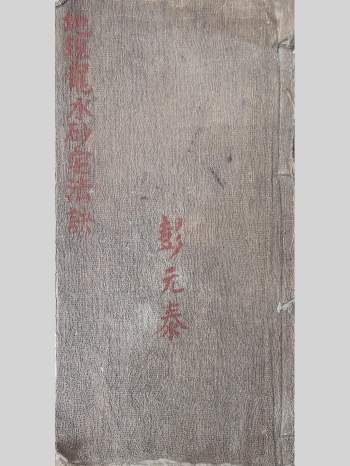 地理龍水砂穴清訣
彭元泰